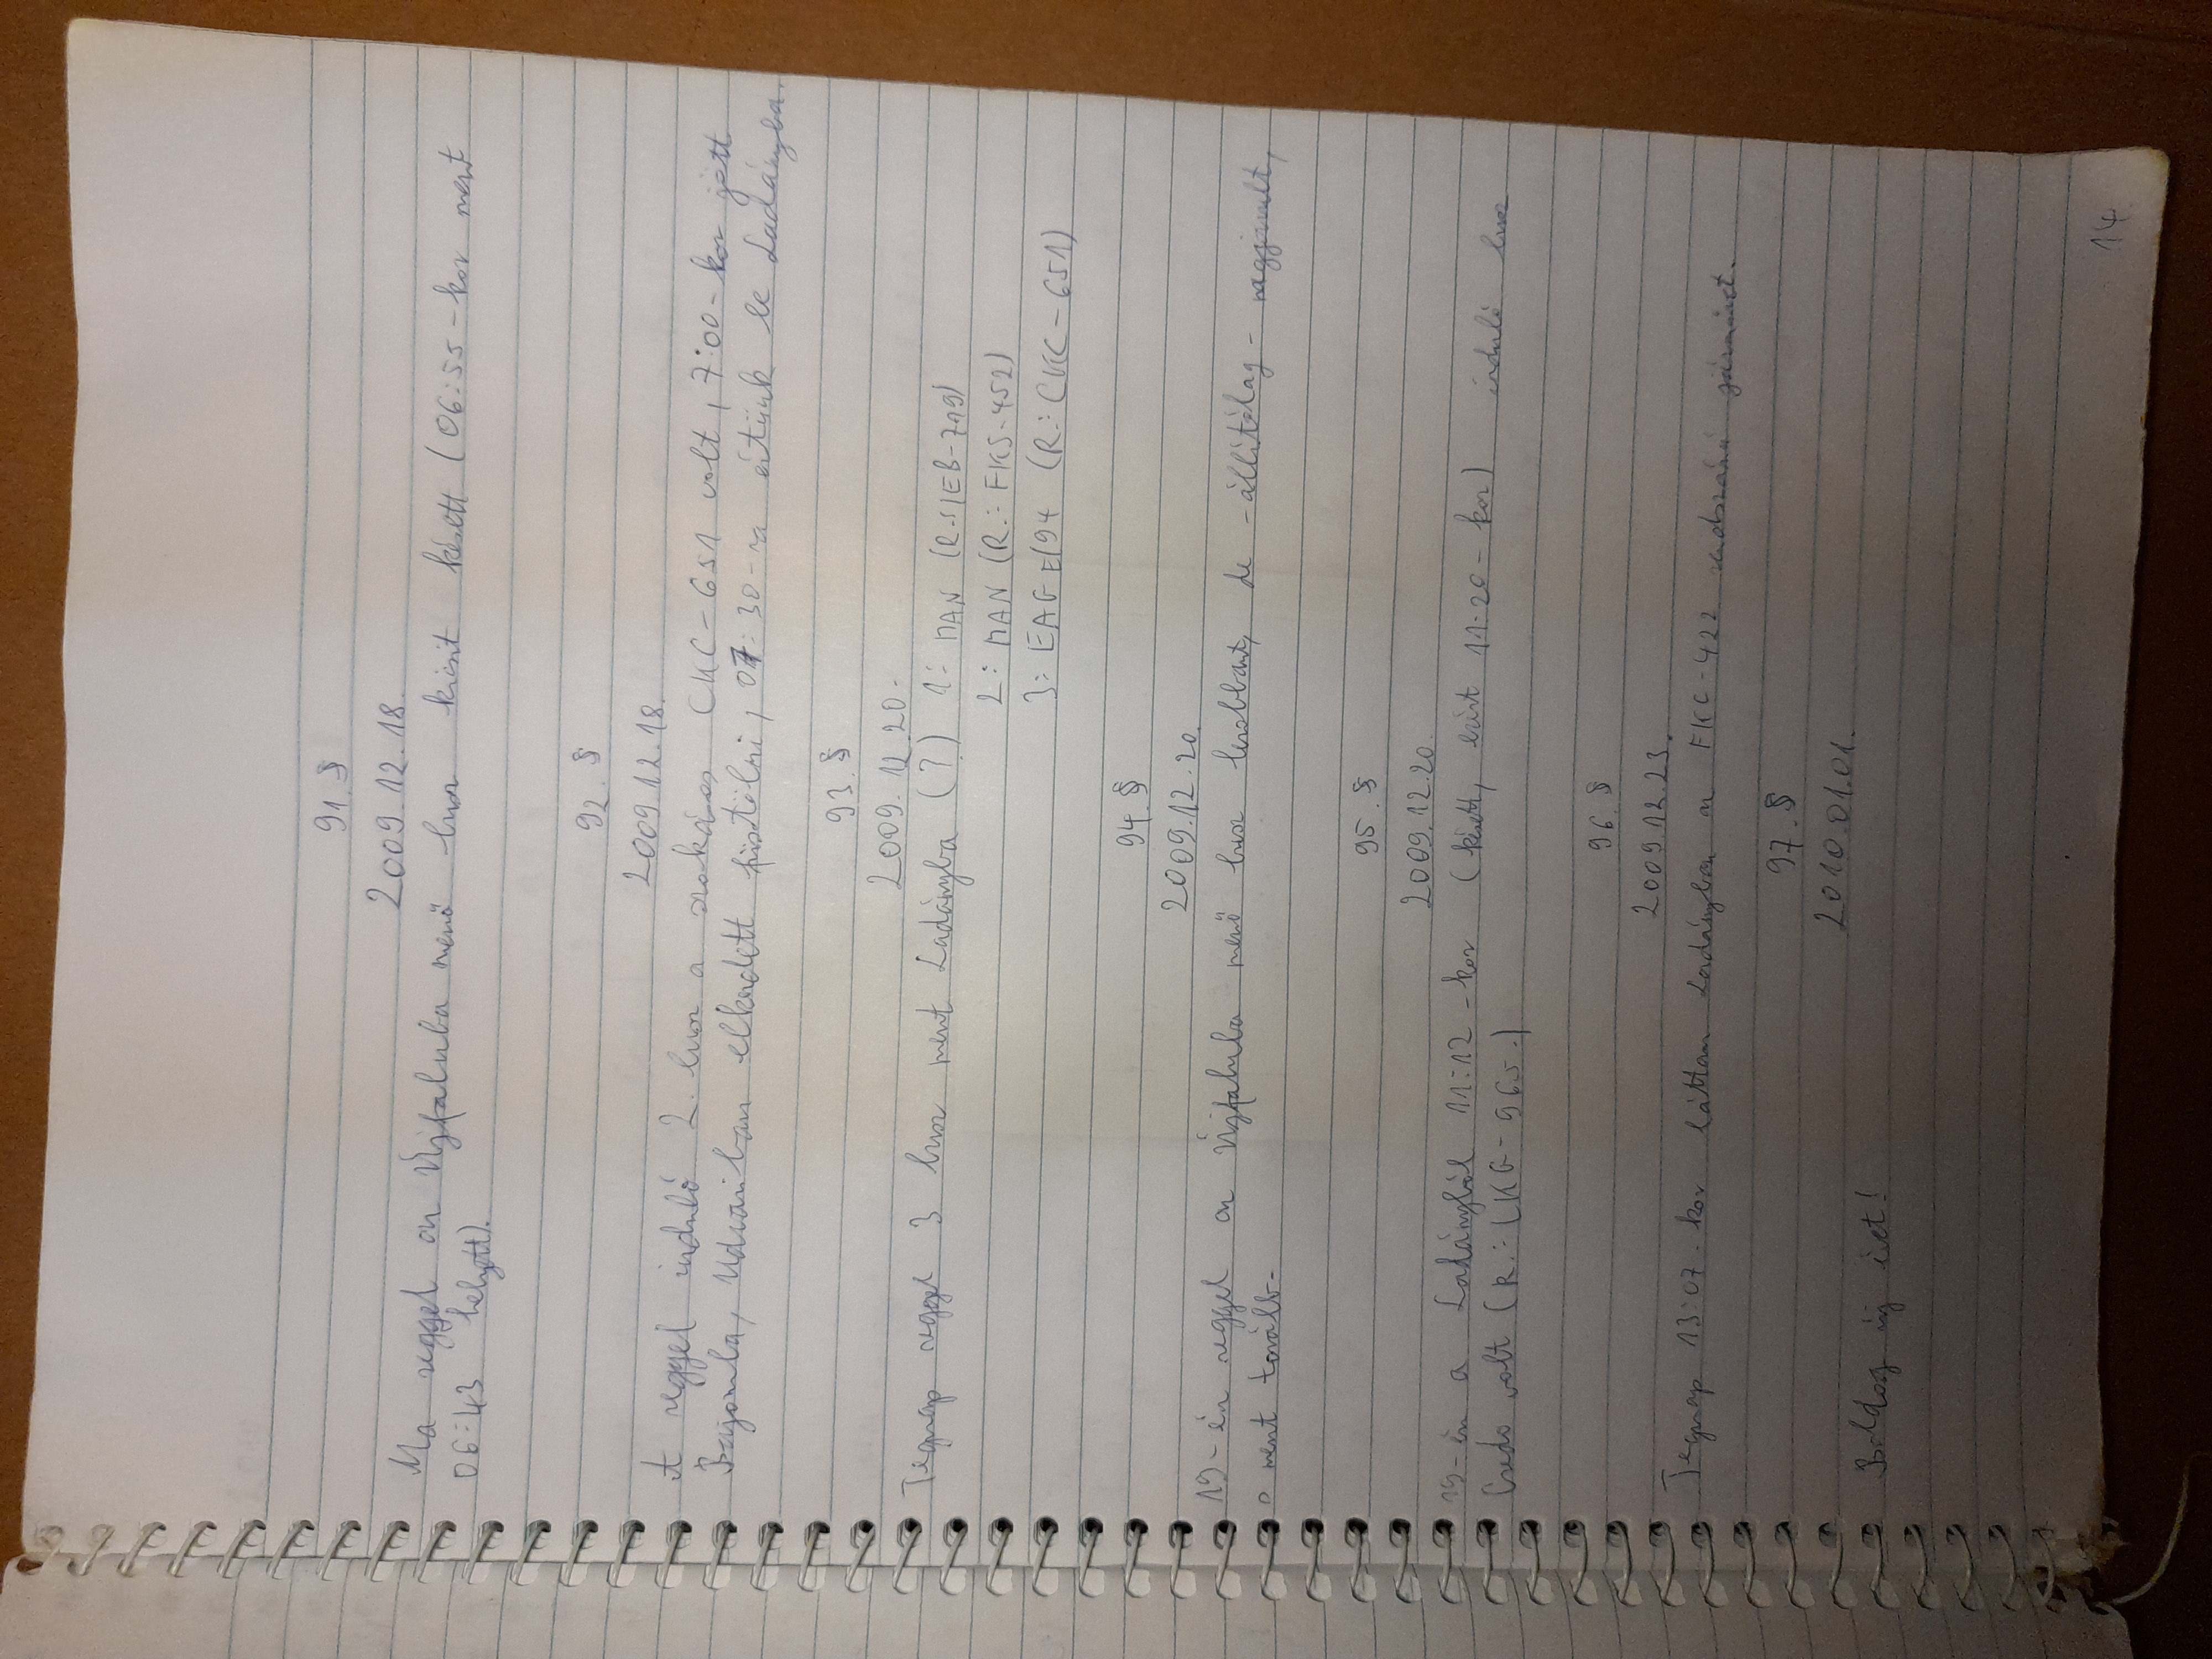 91. §
2009.12.18.
Ma reggel az Újfaluba menő busz kicsit késett (06:55-kor ment
06:43 helyett).
92. §
2009.12.18.
A reggel induló 2. busz a szokásos CKC-651 volt, 7:00-kor jött
Bajomba, Udvariban elkezdett füstölni, 07:30-ra értünk be Ladányba.
93. §
2009.12.20.
Tegnap reggel 3 busz ment Ladányba (?) 1: MAN (R:IEB-719)
2: MAN (R.: FKS-452)
3: EAG E94 (R.: CKC-651)
94. §
2009.12.20.
19-én reggel az Újfaluba menő busz lerobbant, de -állítólag- megjavult,
s ment tovább.
95. §
2009.12.20.
19-én a Ladányból 11:12-kor (késett, ezért 11:20-kor) induló busz
Credo volt (R.: LKG-965.)
96. §
2009.12.23.
Tegnap 13:07-kor láttam Ladányban az FKC-422 rendszámú járművet.
97. §
2010.01.01.
Boldog új évet!
14